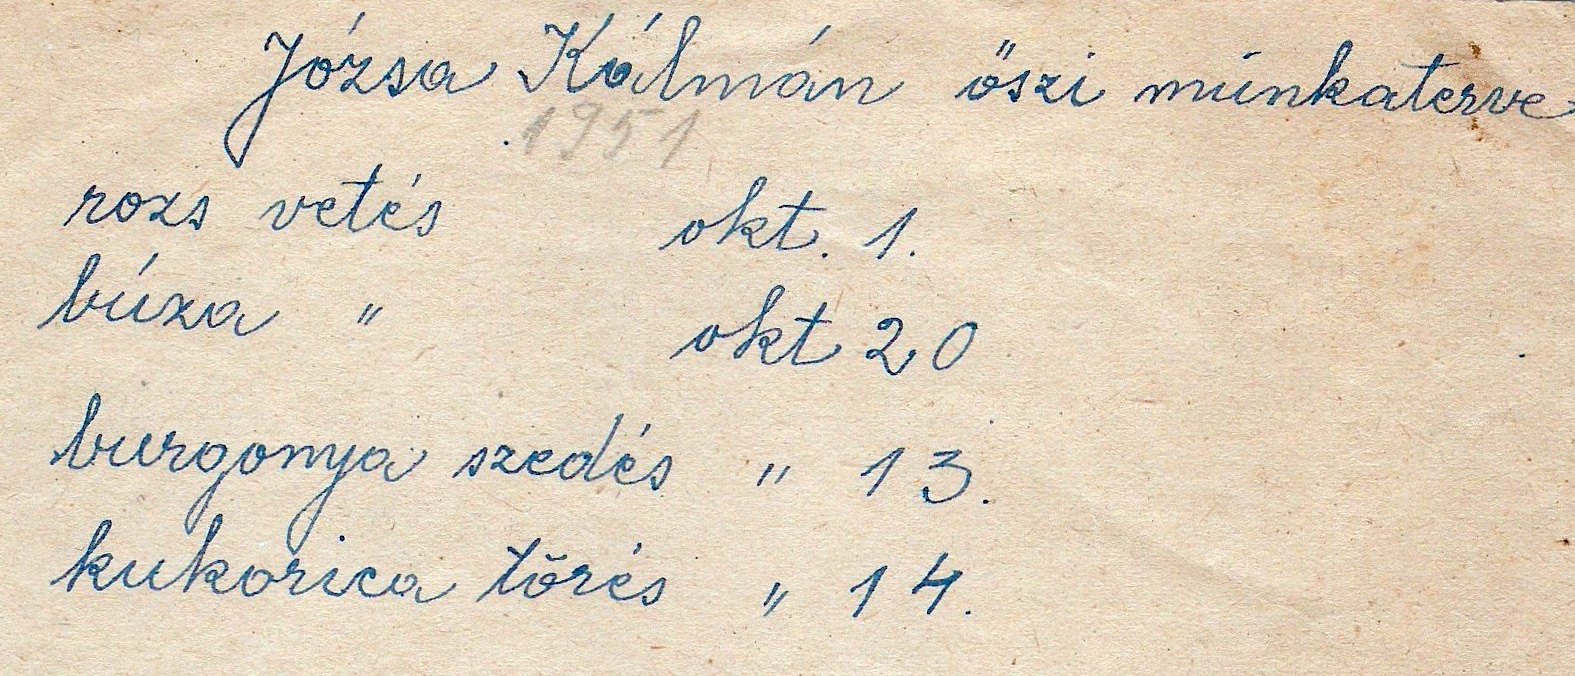 Józsa Kálmán őszi múnkaterve
1951
rozs vetés okt. 1.
búza " okt 20
burgonya szedés " 13.
kukorica törés " 14.